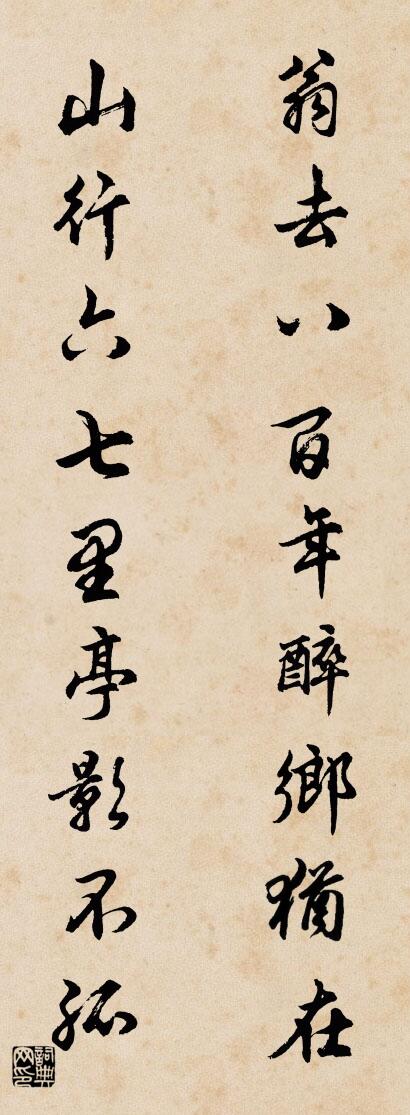 翁去八百年醉鄉猶在
山行六七里亭影不孤
詞典網印